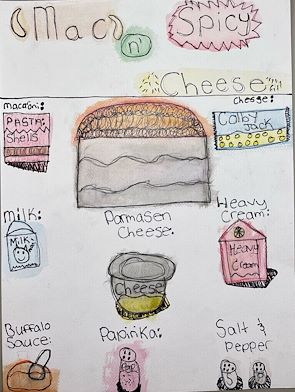 Mac
Spicy
n'
Cheese
macaroni:
Cheese:
PASTA:
Shells
Colby
Jack
Milk:
Parmasen
Cheese:
Heavy
Cream:
Milk
Cheese
Heavy
Cream
Buffalo
Sauce:
Paprika:
Salt &
Pepper